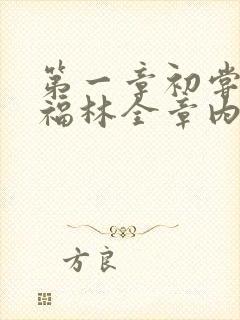 第一章初尝
福林全章内
方良